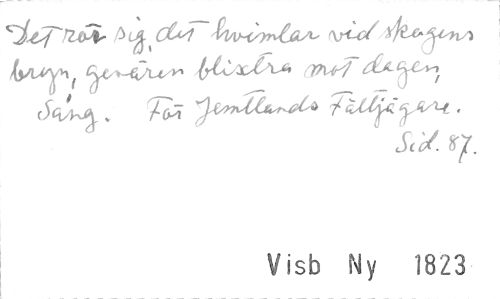 Det rör sig, det hvimlar vid skogens
bryn, gevären blixtra mot dagen,
Sång. För Jemtlands Fältjägare.
Sid. 87.
Visb Ny 1823